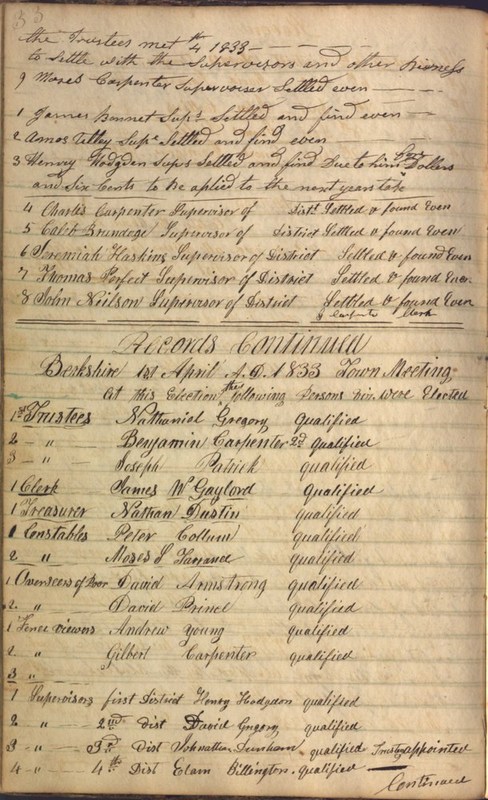 the Trustees met 4th 1833
to Settle with the Supervisors and other Bisness
9 Moses Carpenter Supervoiser Settled even
1 James Bennet Supr Settled and find even
2 Amos Tilley Supr Settled and find even
3 Henry Hodgden Supr Settled and find Due to him Dollars
and Six Cents to be aplied to the next years tax
4 Charls Carpenter Supervisor of Dist. Settled & found Even
5 Caleb Brundage Supervisor of District Settled & found Even
6 Jeremiah Haskins Supervisor of District Settled & found Even
7 Thomas Perfect Supervisor of District Settled & found Even
8 John Neilson Supervisor of District Settled & found Even
Carpenter Clerk
Records Continued
Berkshire 1st April A.D. 1833 Town Meeting
At this Election the following Persons were Elected
1st Trustees Nathaniel Gregory Qualified
2 - " Benjamin Carpenter 2d qualified
3 - " Joseph Patrick qualified
1 Clerk James W Gaylord qualified
1 Treasurer Nathan Dustin qualified
1 Constables Peter Collum qualified
2 " Moses S Farrand qualified
1 Overseers of Poor David Armstrong qualified
2. " David Prince qualified
1 Fence viewers Andrew Young qualified
2. " Gilbert Carpenter qualified
3 "
1 Supervisors first District Henry Hodgdon qualified
2 " 2nd dist David Gregory qualified
3 - " 3rd Dist Johnathan Dunham qualified Trustees appointed
4 - " 4th Dist Elam Billington. qualified
Continued